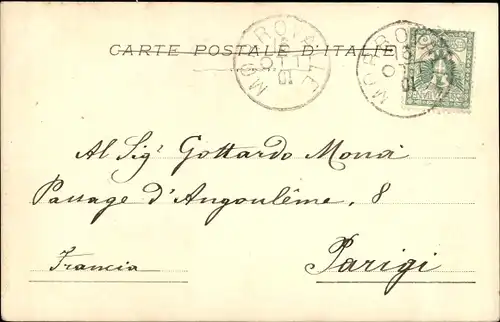 CARTE POSTALE D'ITALIE
MORROVALLE
OTT
01
MORROVALLE
OTT
01
Al Sigr Gottardo Monai
Passage d'Angoulême, 8
Francia
Parigi